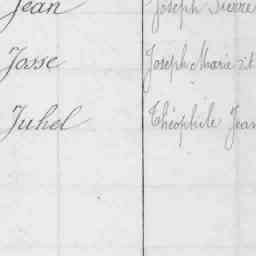 Jean Joseph Pierre
Josse Joseph Marie
Juhel Théophile Jean